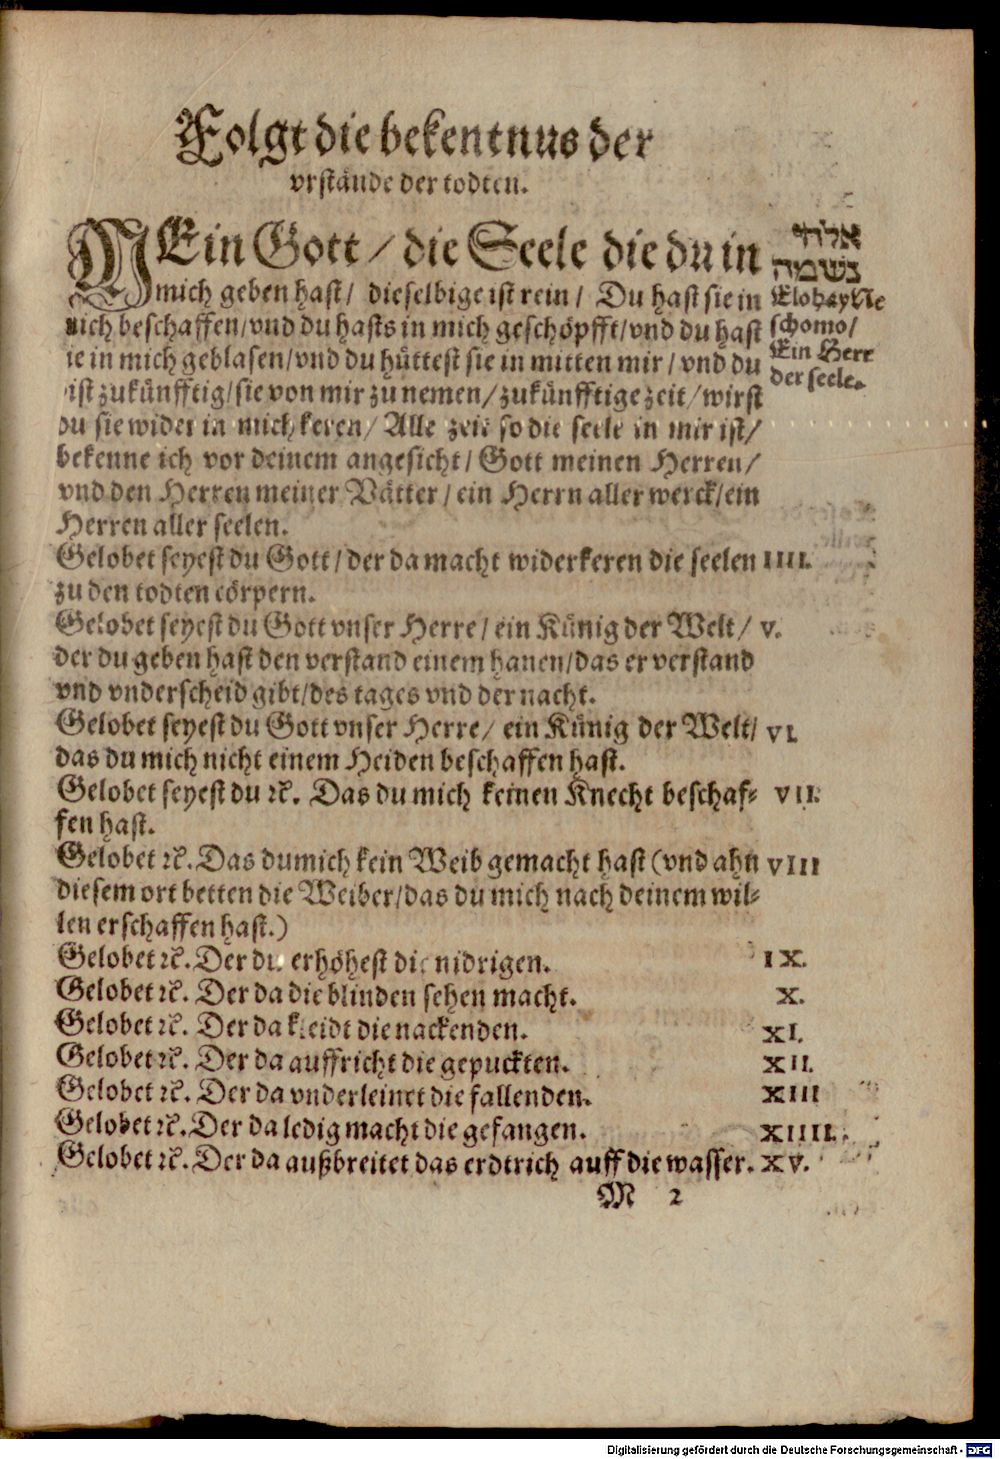 Folgt die bekentnus der
vrstände der todten.
MEin Gott / die Seele die du in
mich geben hast / dieselbige ist rein / Du hast sie in
mich beschaffen / vnd du hasts in mich geschöpfft / vnd du hast
ie in mich geblasen / vnd du hüttest sie in mitten mir / vnd du
ist zukünfftig / sie von mir zu nemen / zukünfftige zeit / wirst
du sie wider in mich keren / Alle zeit so die seele in mir ist /
bekenne ich vor deinem angesicht / Gott meinen Herren /
vnd den Herren meiner Vätter / ein Herrn aller werck / ein
Herren aller seelen.
אלוהי
נשמה
Elohay Ne
schomo /
Ein Herr
der seele.
Gelobet seyest du Gott / der da macht widerkeren die seelen IIII.
zu den todten cörpern.
Gelobet seyest du Gott vnser Herre / ein Künig der Welt / V.
der du geben hast den verstand einem hanen / das er verstand
vnd vnderscheid gibt / des tages vnd der nacht.
Gelobet seyest du Gott vnser Herre / ein Künig der Welt / VI.
das du mich nicht einem Heiden beschaffen hast.
Gelobet seyest du ꝛc. Das du mich keinen Knecht beschaf⸗ VII.
fen hast.
Gelobet ꝛc. Das du mich kein Weib gemacht hast (vnd ahn VIII
diesem ort betten die Weiber / das du mich nach deinem wil⸗
len erschaffen hast.)
Gelobet ꝛc. Der du erhöhest die nidrigen. IX.
Gelobet ꝛc. Der da die blinden sehen macht. X.
Gelobet ꝛc. Der da kleidt die nackenden. XI.
Gelobet ꝛc. Der da auffricht die gepuckten. XII.
Gelobet ꝛc. Der da vnderleinet die fallenden. XIII
Gelobet ꝛc. Der da ledig macht die gefangen. XIIII.
Gelobet ꝛc. Der da außbreitet das erdtrich auff die wasser. XV.
M 2
Digitalisierung gefördert durch die Deutsche Forschungsgemeinschaft - DFG